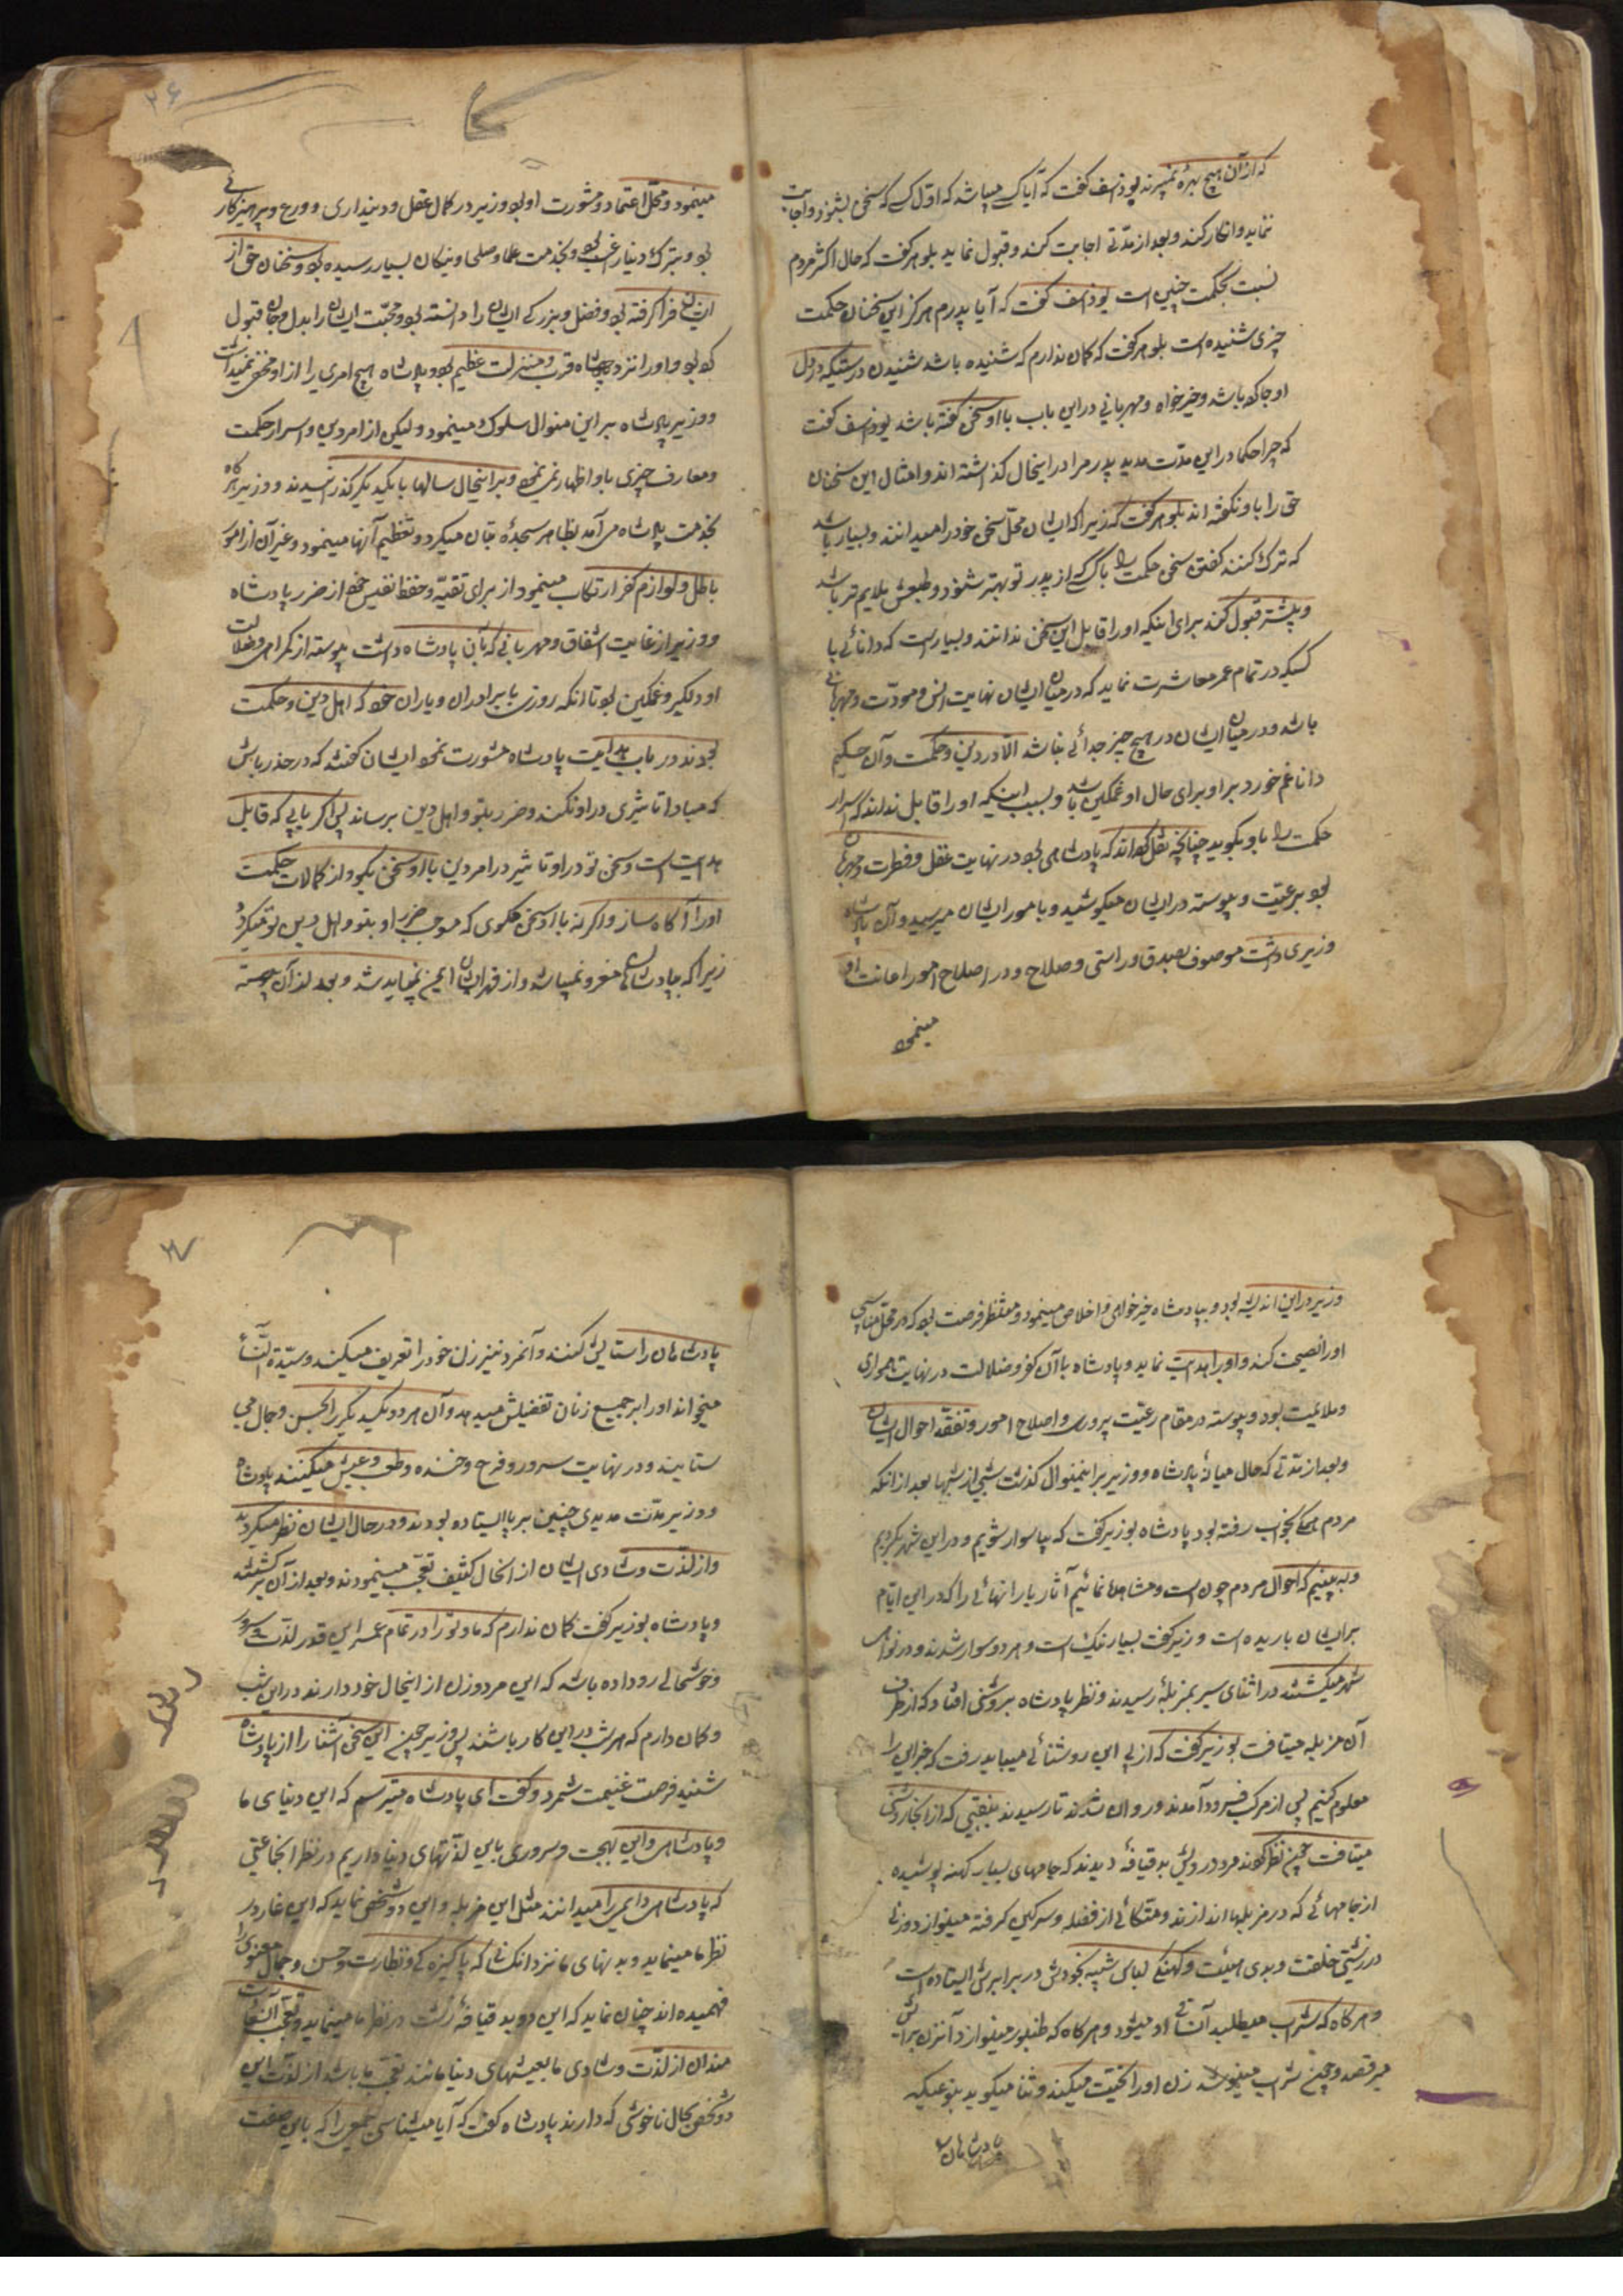 که از آن هیچ بهرهٔ نمیبرند یوذاسف گفت که آیا کسی میباشد که اول کسی که سخن بشنود و اجابت
ننماید و انکار کند و بعد از مدتی اجابت کند و قبول نماید بلوهر گفت که حال اکثر مردم
نسبت بحکمت چنین است یوذاسف گفت که آیا پدرم هرگز این سخنان حکمت
چیزی شنیده است بلوهر گفت که گمان ندارم که شنیده باشد شنیدن درستیکه در دل
او جا کرده باشد و خیرخواه و مهربانی در این باب با او سخن گفته باشد یوذاسف گفت
که چرا حکما در این مدت مدید پدر مرا در اینحال گذاشته اند و امثال این سخنان
حق را باو نگفته اند بلوهر گفت که زیرا که ایشان محل سخن خود را میدانند و بسیار باشد
که ترک کنند گفتن سخن حکمت را با کسی که از پدر تو بهتر شنود و طبعش ملایم تر باشد
و بیشتر قبول کند برای اینکه او را قابل این سخن ندانند و بسیار است که دانائی با
کسیکه در تمام عمر معاشرت نماید که در میان ایشان نهایت انس و مودت و مهربانی
باشد و در میان ایشان در هیچ چیز جدائی نباشد الا در دین و حکمت و آن حکیم
دانا غم خورد بر او و برای حال او غمگین باشد و بسبب اینکه او را قابل نداند که اسرار
حکمت را باو بگوید چنانچه نقل کرده اند که پادشاهی بود در نهایت عقل و فطرت و مهربان
بود برعیت و پیوسته در ایشان میکوشید و بامور ایشان میرسید و آن پادشاه
وزیری داشت موصوف بصدق و راستی و صلاح و در اصلاح امور اعانت او
مینمود
۲۶
مینمود و محل اعتماد و مشورت او بود و وزیر در کمال عقل و دینداری و ورع و پرهیزکاری
بود و بترک دنیا راغب بود و بخدمت علما و صلحا و نیکان بسیار رسیده بود و سخنان حق از
ایشان فرا گرفته بود و فضل و بزرگی ایشان را دانسته بود و محبت ایشان را بدل و جان قبول
کرده بود و او را نزد پادشاه قرب و منزلت عظیم بود و پادشاه هیچ امری را از او مخفی نمیداشت
و وزیر پادشاه بر این منوال سلوک مینمود و لیکن از امر دین و اسرار حکمت
و معارف چیزی باو اظهار نمینمود و بر اینحال سالها با یکدیگر گذرانیدند و وزیر هرگاه
بخدمت پادشاه می آمد بظاهر سجدهٔ بتان میکرد و تعظیم آنها مینمود و غیر آن از امور
باطل و لوازم کفر ارتکاب مینمود از برای تقیه و حفظ نفس خود از ضرر پادشاه
و وزیر از غایت اشفاق و مهربانی که بآن پادشاه داشت پیوسته از گمراهی و ضلالت
او دلگیر و غمگین بود تا آنکه روزی با برادران و یاران خود که اهل دین و حکمت
بودند در باب هدایت پادشاه مشورت نمود ایشان گفتند که در حذر باش
که مبادا تاثیری در او نکند و ضرر بتو و اهل دین برساند پس اگر یابی که قابل
هدایت است و سخن تو در او تاثیر در امر دین با او سخن بگو و از کلمات حکمت
او را آگاه ساز و اگر نه با او سخن مگوی که موجب ضرر او بتو و اهل دین تو میگردد
زیرا که بپادشاهان مغرور نمیباید شد و از قهر ایشان ایمن نمیباید شد و بعد از آن پیوسته
وزیر در این اندیشه بود و بپادشاه خیرخواهی و اخلاص مینمود و منتظر فرصت بود که در محل مناسبی
او را نصیحت کند و او را هدایت نماید و پادشاه با آن کفر و ضلالت در نهایت همواری
و ملایمت بود و پیوسته در مقام رعیت پروری و اصلاح امور و تفقد احوال ایشان
و بعد از مدتی که حال میانهٔ پادشاه و وزیر بر اینمنوال گذشت شبی از شبها بعد از آنکه
مردم همگی بخواب رفته بود پادشاه بوزیر گفت که بیا سوار شویم و در این شهر بگردیم
و به بینیم که احوال مردم چون است و مشاهده نمائیم آثار بارانهائی را که در این ایام
بر ایشان باریده است وزیر گفت بسیار نیک است و هر دو سوار شدند و در نواحی
شهر میگشتند در اثنای سیر بمزبلهٔ رسیدند و نظر پادشاه بروشنی افتاد که از طرف
آن مزبله میتافت بوزیر گفت که از پی این روشنائی میباید رفت که خبر این را
معلوم کنیم پس از مرکب فرود آمدند و روان شدند تا رسیدند بنقبی که از آنجا روشنی
میتافت چون نظر کردند مرد درویش بدقیافهٔ دیدند که جامهای بسیار کهنه پوشیده
از جامهائی که در مزبلها اندازند و متکائی از فضله و سرگین گرفته مینوازد و زنی
در زشتی خلقت و بدی هیئت و کهنگی لباس شبیه بخودش در برابرش ایستاده است
و هرگاه که شراب میطلبد آن ساقی او میشود و هرگاه که طنبور مینوازد آنزن برایش
میرقصد و چون شراب مینوشد زن او را تحیت میکند و ثنا میگوید بنوعیکه
پادشاهان
۲۷
پادشاهان را ستایش کنند و آنمرد نیز زن خود را تعریف میکند و سیدة النساء
میخواند او را بر جمیع زنان تفضیل میدهد و آن هر دو یکدیگر را بحسن و جمال می
ستایند و در نهایت سرور و فرح و خنده و طرب و عیش میکنند پادشاه
و وزیر مدت مدیدی چنین بر پا ایستاده بودند و در حال ایشان نظر میکردند
و از لذت و شادی ایشان از آنحال کثیف تعجب مینمودند و بعد از آن برگشتند
و پادشاه بوزیر گفت گمان ندارم که ما و تو را در تمام عمر این قدر لذت و سرور
و خوشحالی رو داده باشد که این مرد و زن از اینحال خود دارند در این شب
و گمان دارم که هر شب در این کار باشند پس وزیر چون این سخن آشنا را از پادشاه
شنید فرصت غنیمت شمرد و گفت ای پادشاه میترسم که این دنیای ما
و پادشاهی و این بهجت و سروری باین لذتهای دنیا داریم در نظر آنجماعتی
که پادشاهی دایمی را میدانند مثل این مزبله و این دو شخص نماید که این غار در
نظر ما مینماید و بدنهای ما نزد آنکسانی که پاکیزگی و نظارت و حسن و جمال معنوی را
فهمیده اند چنان نماید که این دو بد قیافهٔ زشت در نظر ما مینماید و تعجب آن سعادت
مندان از لذت و شادی ما بعیشهای دنیا مانند تعجب ما باشد از لذت این
دو شخص بحال ناخوشی که دارند پادشاه گفت که آیا میشناسی جمعی را که باین صفت